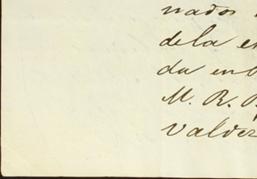 nados
dela en
da en
M. R. P
Valdez